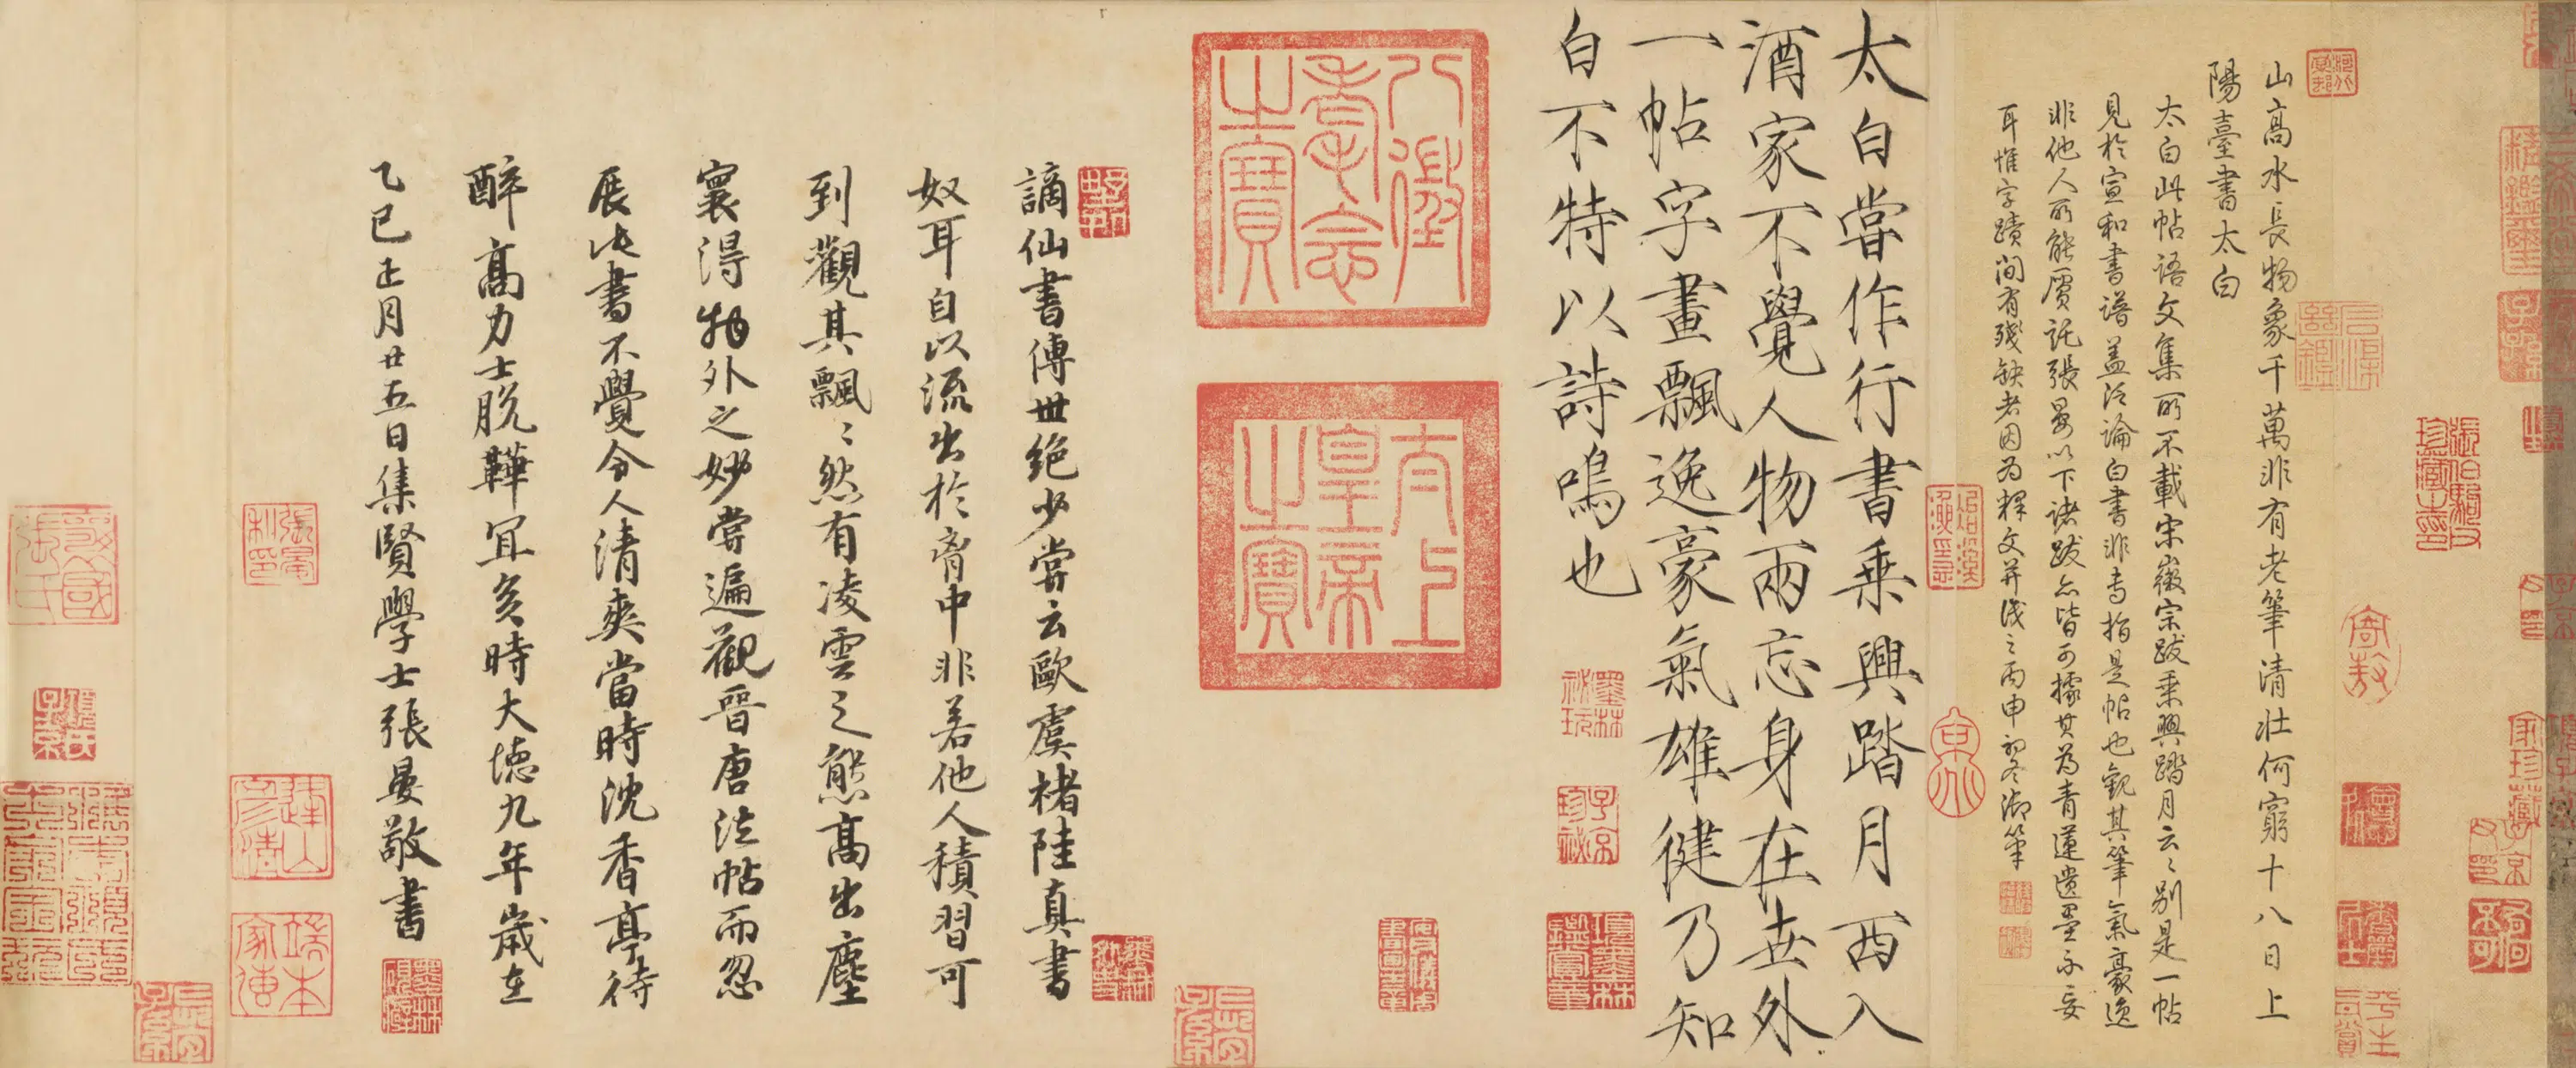 山高水長物象千萬非有老筆清壯何窮十八日上
陽臺書太白
太白此帖語文集所不載宋徽宗跋乘興踏月云〻別是一帖
見於宣和書譜蓋泛論白書非專指是帖也觀其筆氣豪逸
非他人所能贗託張晏以下諸跋亦皆可據其為青蓮遺墨不妄
耳惟字蹟間有殘缺者因為釋文並識之丙申初冬御筆
太白嘗作行書乘興踏月西入
酒家不覺人物兩忘身在世外
一帖字畫飄逸豪氣雄健乃知
白不特以詩鳴也
八徵耄念之寶
太上皇帝之寶
謫仙書傳世絕少嘗云歐虞褚陸真書
奴耳自以流出於胷中非若他人積習可
到觀其飄〻然有凌雲之態高出塵
寰得物外之妙嘗遍觀晉唐法帖而忽
展此書不覺令人清爽當時沈香亭待
醉高力士脫鞾宜矣時大德九年歲在
乙巳正月廿五日集賢學士張晏敬書